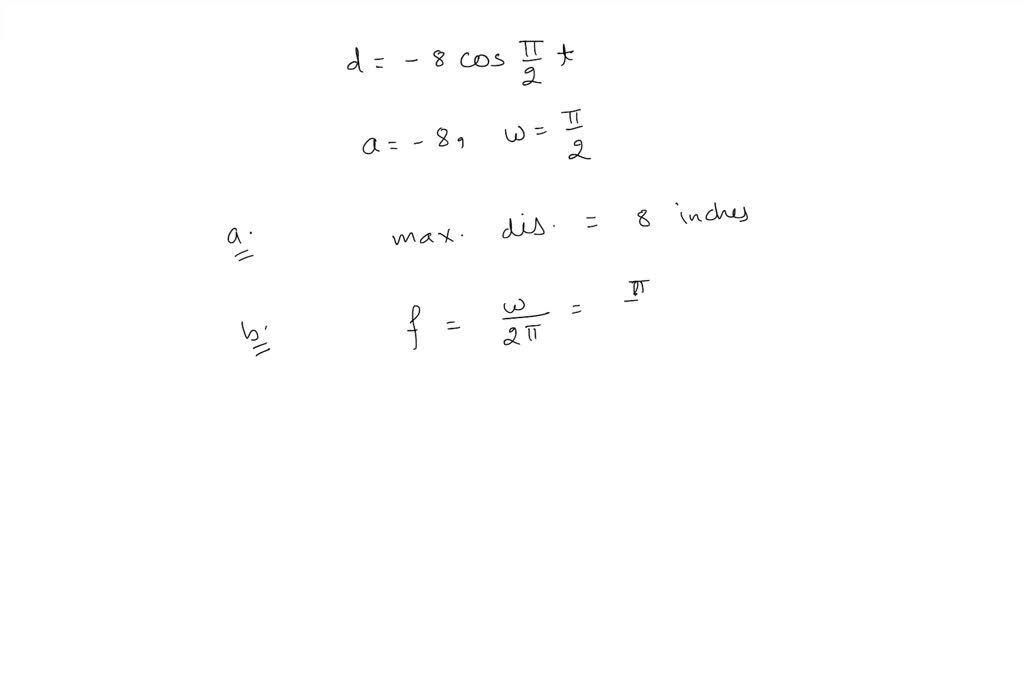 d = - 8 cos π/2 t
a = - 8, ω = π/2
a. max. dis. = 8 inches
b. f = ω/2π = π